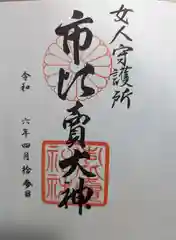 女人守護所
市比賣大神
令和
六年四月拾
日